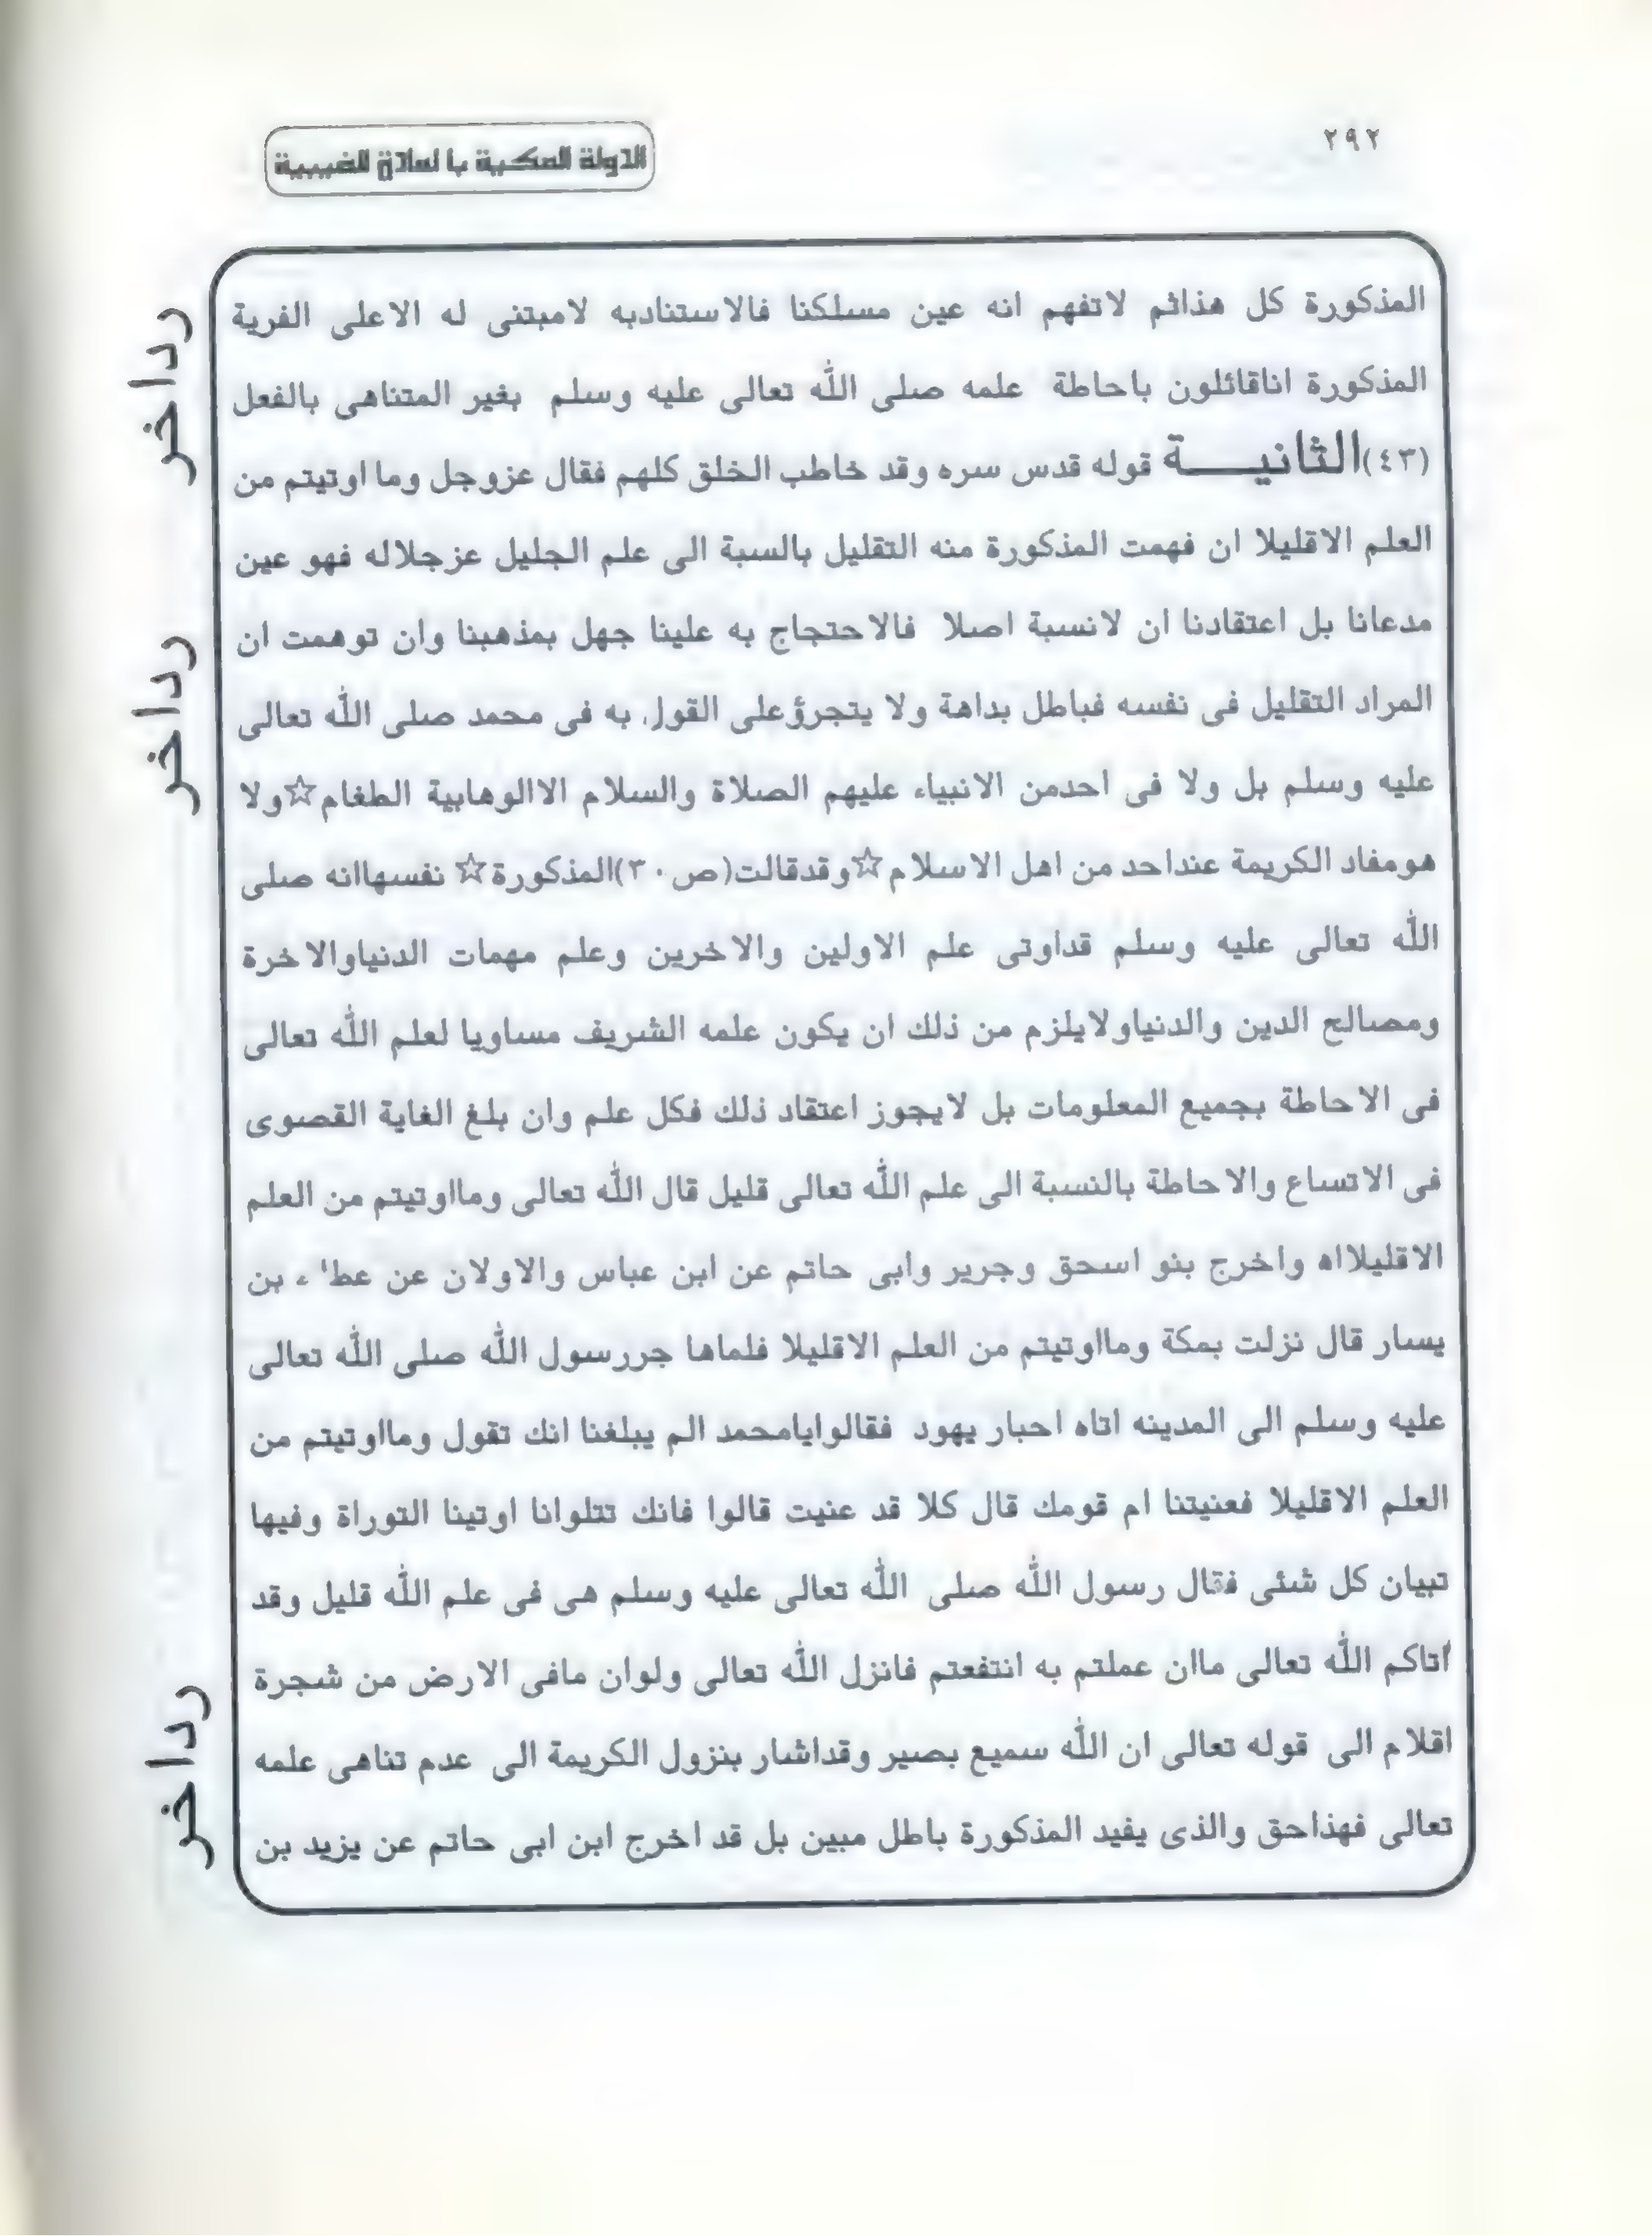 ٢٩٢
الدولة المكية با لمادة الغيبية
المذكورة كل هذائم لاتفهم انه عين مسلكنا فالاستنادبه لامبتنى له الاعلى الفرية
المذكورة اناقائلون باحاطة علمه صلى الله تعالى عليه وسلم بغير المتناهى بالفعل
(٤٣)الثانيـــة قوله قدس سره وقد خاطب الخلق كلهم فقال عزوجل وما اوتيتم من
العلم الاقليلا ان فهمت المذكورة منه التقليل بالسبة الى علم الجليل عزجلاله فهو عين
مدعانا بل اعتقادنا ان لانسبة اصلا فالاحتجاج به علينا جهل بمذهبنا وان توهمت ان
المراد التقليل فى نفسه فباطل بداهة ولا يتجرؤعلى القول به فى محمد صلى الله تعالى
عليه وسلم بل ولا فى احدمن الانبياء عليهم الصلاة والسلام الاالوهابية الطغام☆ولا
هومفاد الكريمة عنداحد من اهل الاسلام☆وقدقالت(ص٣٠)المذكورة☆ نفسهاانه صلى
الله تعالى عليه وسلم قداوتى علم الاولين والاخرين وعلم مهمات الدنياوالاخرة
ومصالح الدين والدنياولايلزم من ذلك ان يكون علمه الشريف مساويا لعلم الله تعالى
فى الاحاطة بجميع المعلومات بل لايجوز اعتقاد ذلك فكل علم وان بلغ الغاية القصوى
فى الاتساع والاحاطة بالنسبة الى علم الله تعالى قليل قال الله تعالى ومااوتيتم من العلم
الاقليلااه واخرج بنو اسحق وجرير وابى حاتم عن ابن عباس والاولان عن عطاء بن
يسار قال نزلت بمكة ومااوتيتم من العلم الاقليلا فلماها جررسول الله صلى الله تعالى
عليه وسلم الى المدينه اتاه احبار يهود فقالوايامحمد الم يبلغنا انك تقول ومااوتيتم من
العلم الاقليلا فعنيتنا ام قومك قال كلا قد عنيت قالوا فانك تتلوانا اوتينا التوراة وفيها
تبيان كل شئى فقال رسول الله صلى الله تعالى عليه وسلم هى فى علم الله قليل وقد
أتاكم الله تعالى ماان عملتم به انتفعتم فانزل الله تعالى ولوان مافى الارض من شجرة
اقلام الى قوله تعالى ان الله سميع بصير وقداشار بنزول الكريمة الى عدم تناهى علمه
تعالى فهذاحق والذى يفيد المذكورة باطل مبين بل قد اخرج ابن ابى حاتم عن يزيد بن
رداخر
رداخر
رداخر